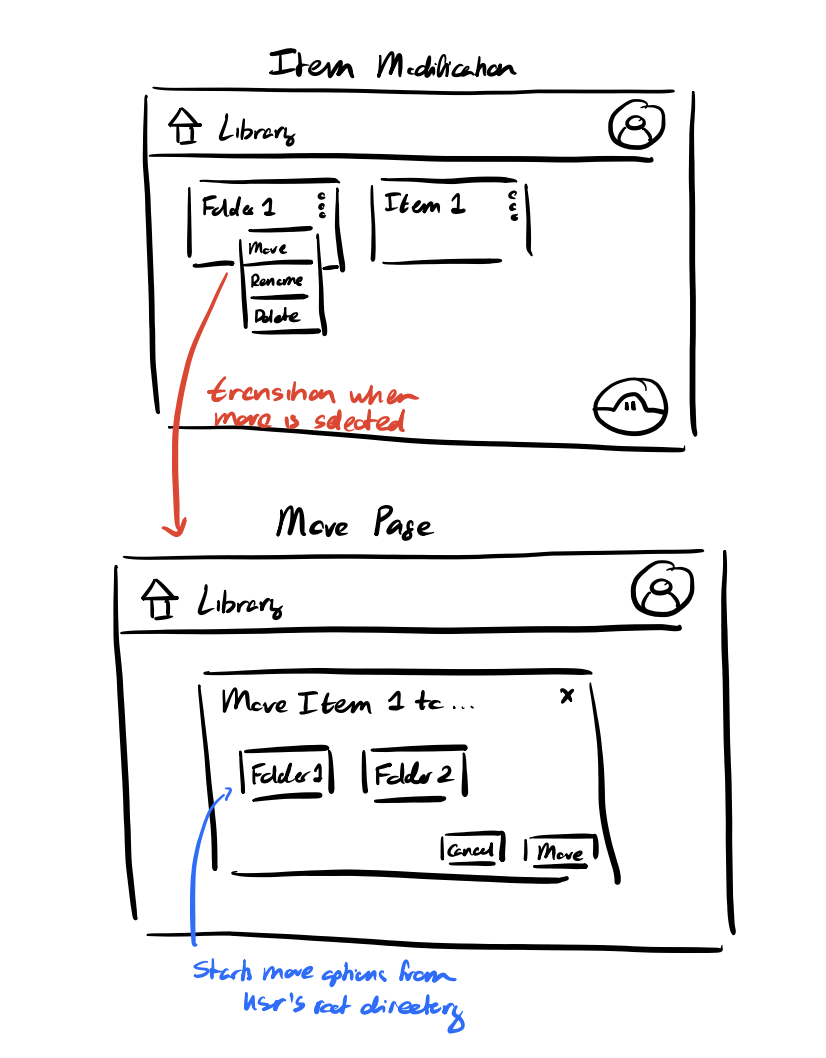 Item Modification
Library
Folder 1
Item 1
Move
Rename
Delete
transition when
move is selected
Move Page
Library
Move Item 1 to ...
x
Folder 1
Folder 2
Cancel
Move
Starts move options from
usr's root directory